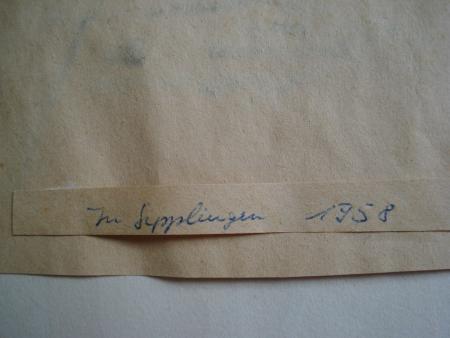 In Sipplingen 1958